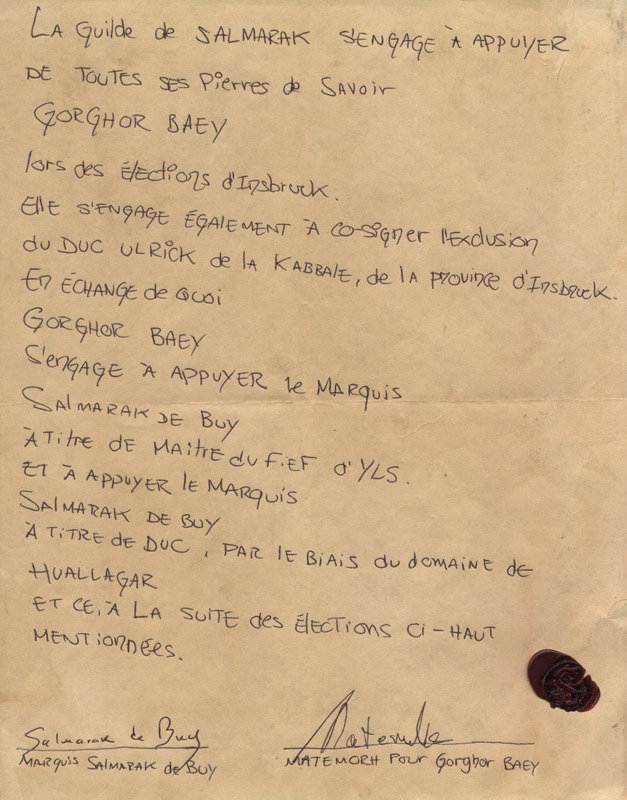 La Guilde de SALMARAK S'ENGAGE À APPUYER
DE TOUTES SES Pierres de SAVoir
GORGHOR BAEY
lors des Élections d'Insbruck.
Elle S'ENGAGE ÉGALEMENT À CO-Signer l'Exclusion
du DUC ULRICK de la KABBALE, de la province d'Insbruck.
En ÉCHANGE de Quoi
GORGHOR BAEY
S'engage À APPUYER le MARQUIS
SALMARAK DE BUY
À Titre de MAÎtre du FIEF d'YLS.
ET À APPUYER le MARQUIS
SALMARAK DE BUY
À TITRE de DUC, PAR le BIAIS du domaine de
HUALLAGAR
ET CE, À LA SUITE des Élections ci-HAUT
MENTIONNÉES.
Salmarak de Buy
Matemorh
MARQUIS SALMARAK de BUY
MATEMORH Pour Gorghor BAEY